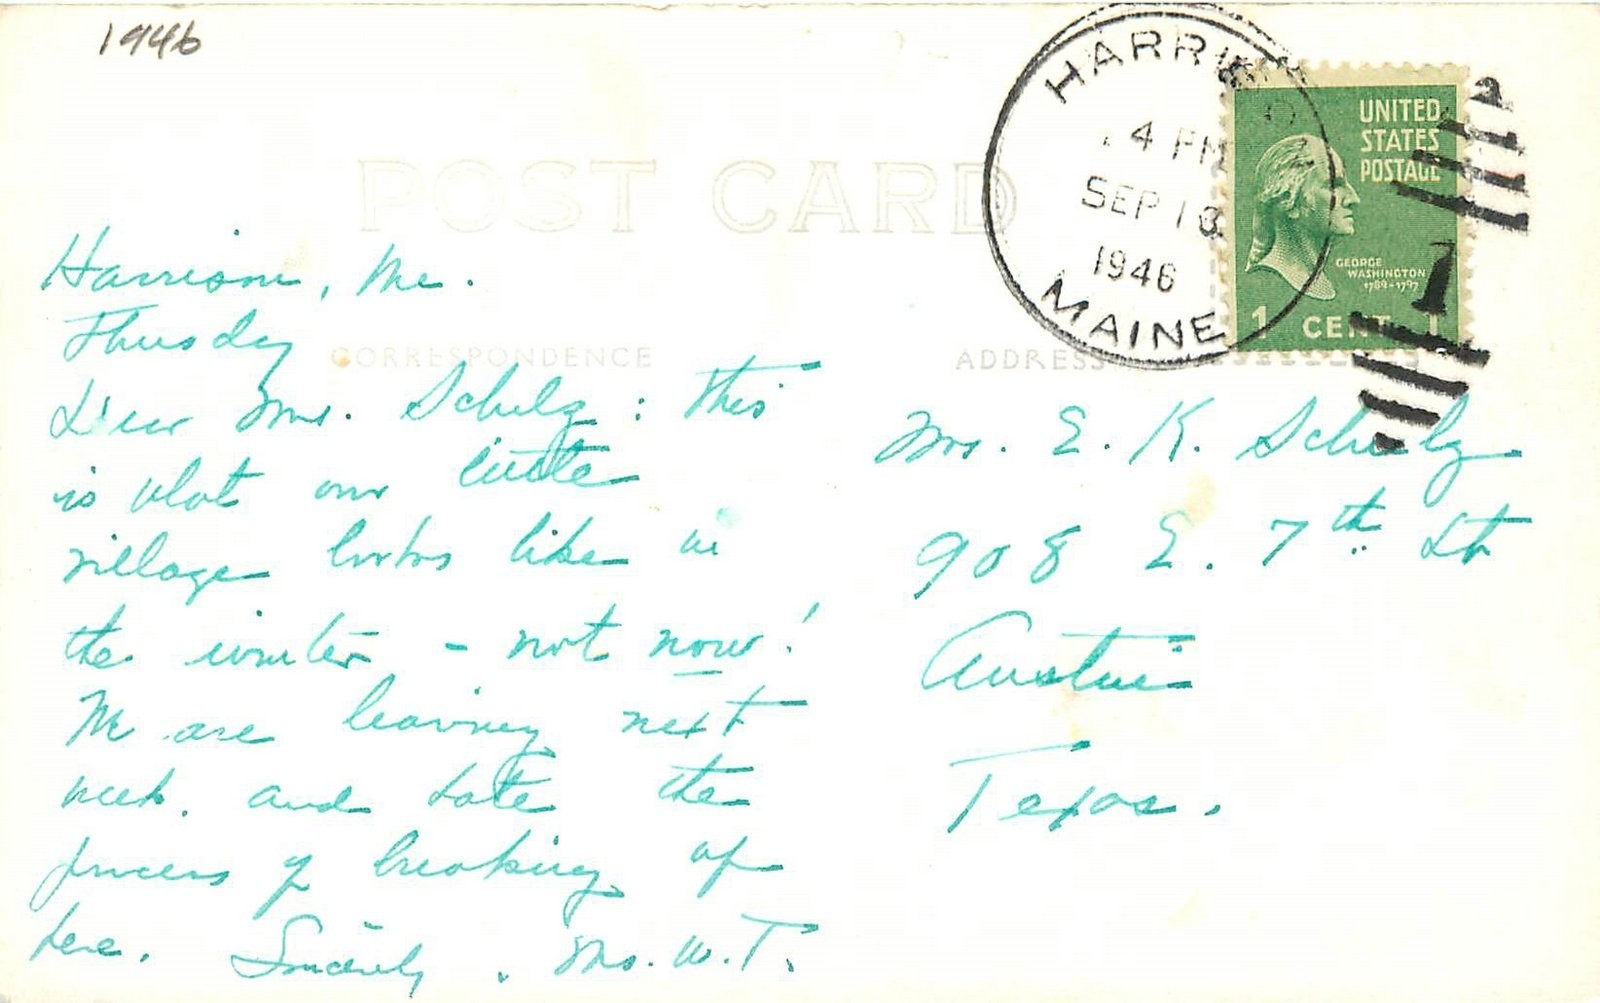 1946
HARRISO
4 PM
SEP 13
1946
MAINE
UNITED
STATES
POSTAGE
GEORGE
WASHINGTON
1789-1797
1 CENT 1
1
POST CARD
CORRESPONDENCE
ADDRESS
Harrison, Me.
Thursday
Dear Mrs. Schulz: This
is what our little
village looks like in
the winter - not now!
We are leaving next
week. and hate the
process of breaking up
here. Sincerely, Mrs. W.T.
Mrs. E. K. Schulz
908 E. 7th St
Austin
Texas.